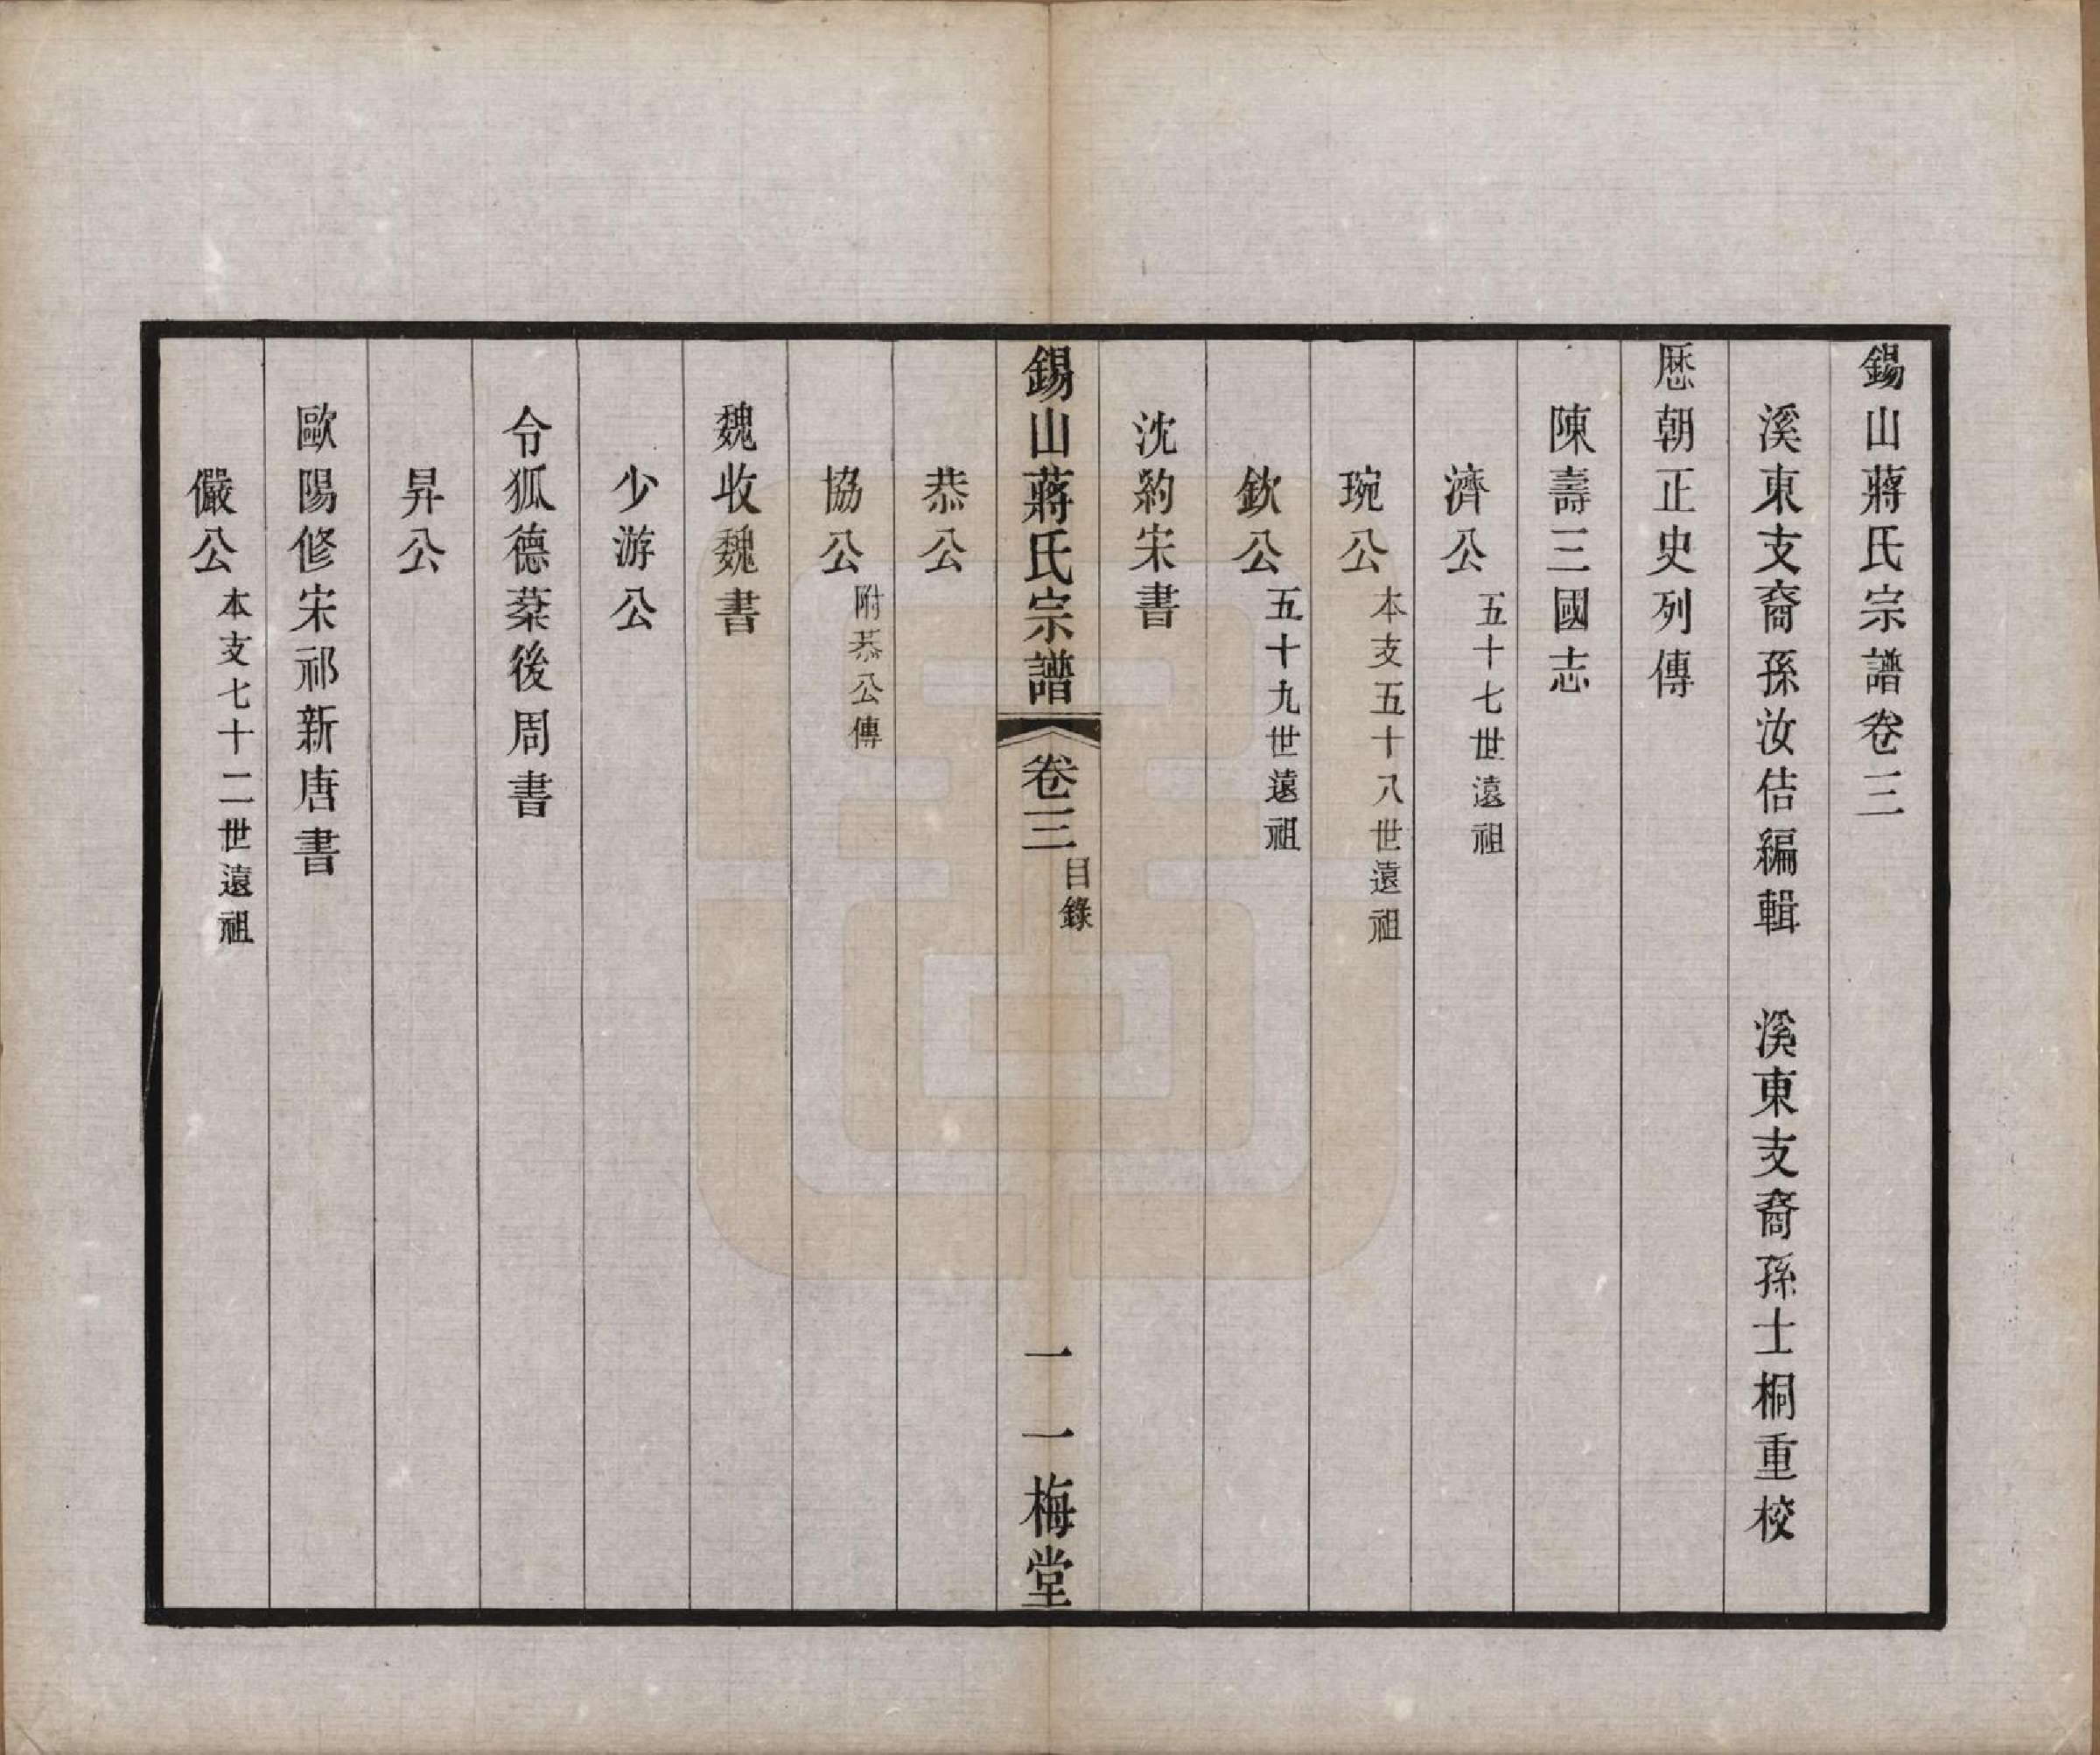 錫山蔣氏宗譜卷三
溪東支裔孫汝佶編輯　溪東支裔孫士桐重校
歷朝正史列傳
陳壽三國志
濟公五十七世遠祖
琬公本支五十八世遠祖
欽公五十九世遠祖
沈約宋書
錫山蔣氏宗譜 卷三目錄 一 一梅堂
恭公
協公附恭公傳
魏收魏書
少游公
令狐德棻後周書
昇公
歐陽修宋祁新唐書
儼公本支七十二世遠祖